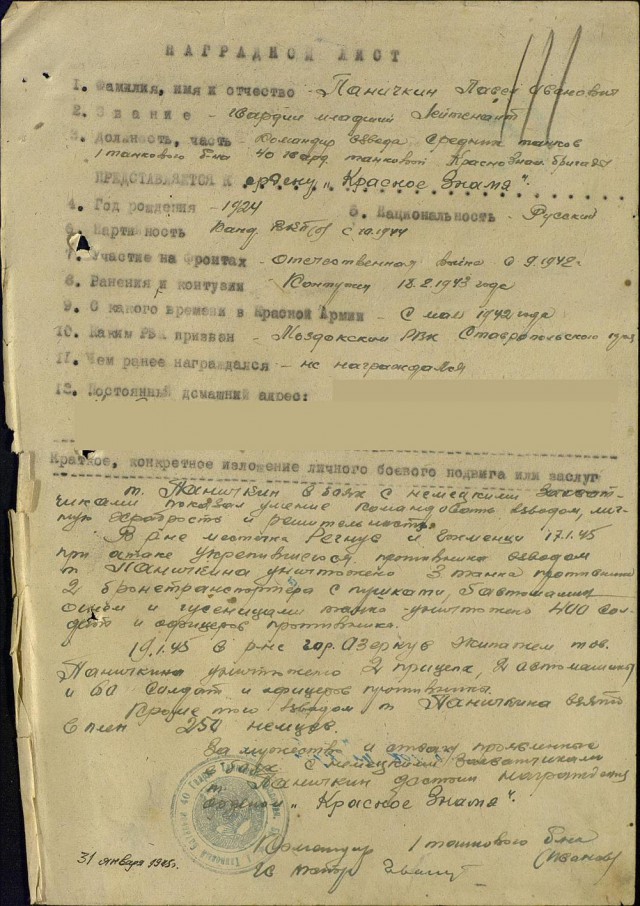 НАГРАДНОЙ ЛИСТ
1. Фамилия, имя и отчество - Паничкин Павел Иванович
2. Звание - гвардии младший Лейтенант
3. Должность, часть - Командир взвода средних танков
1 танкового б-на 40 гвард. танковой Краснознам. бригады
ПРЕДСТАВЛЯЕТСЯ К ордену „Красное Знамя".
4. Год рождения - 1924 5. Национальность - Русский
6. Партийность Канд. ВКП(б) с 10.1944
7. Участие на фронтах - отечественная война с 9.1942г.
8. Ранения и контузии - Контузия 18.2.1943 года
9. С какого времени в Красной Армии - с мая 1942 года
10. Каким РВК призван - Моздокским РВК Ставропольского
11. Чем ранее награждался - не награждался
12. Постоянный домашний адрес:
Краткое, конкретное изложение личного боевого подвига или заслуг
т. Паничкин в боях с немецкими захват-
чиками показал умение командовать взводом, лич-
ную храбрость и решительность.
В р-не местечка и 17.1.45
при атаке укрепившегося противника взводом
т. Паничкина уничтожено 3 танка противника
2 бронетранспортера с пушками, 6 автомашин
огнём и гусеницами танко уничтожено 400 сол-
дат и офицеров противника.
19.1.45 в р-не гор. Озеркув экипажем тов.
Паничкина уничтожено 2 прицепа, 2 автомашины
и 60 солдат и офицеров противника.
Кроме того взводом т. Паничкина взято
в плен 250 немцев.
За мужество и отвагу проявленные
в боях с немецкими захватчиками
т. Паничкин достоин награждения
орденом „Красное Знамя".
Командир 1 танкового б-на
Гв майор (Иванов)
31 января 1945г.